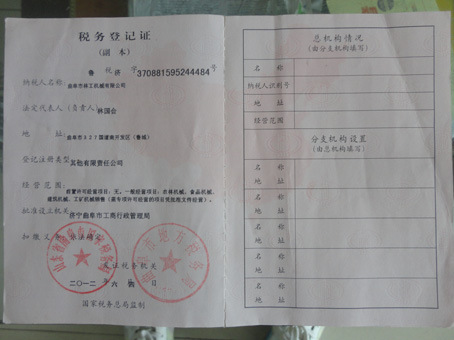 税务登记证
(副 本)
鲁 税 济 字370881595244484号
纳税人名称: 曲阜市林工机械有限公司
法定代表人(负责人) 韩国会
地 址: 曲阜市327国道南开发区(鲁城)
登记注册类型: 其他有限责任公司
经营范围: 前置许可经营项目:无。一般经营项目:农林机械、食品机械、
建筑机械、工矿机械销售(需专项许可经营的项目凭批准文件经营)。
批准设立机关: 济宁曲阜市工商行政管理局
扣缴义务: 依法确定
发证税务机关
曲阜市地方税务局
二〇一二年六 日
国家税务总局监制
总机构情况
(由分支机构填写)
名 称
纳税人识别号
地 址
经营范围
分支机构设置
(由总机构填写)
名 称
地 址
名 称
地 址
名 称
地 址
名 称
地 址
名 称
地 址